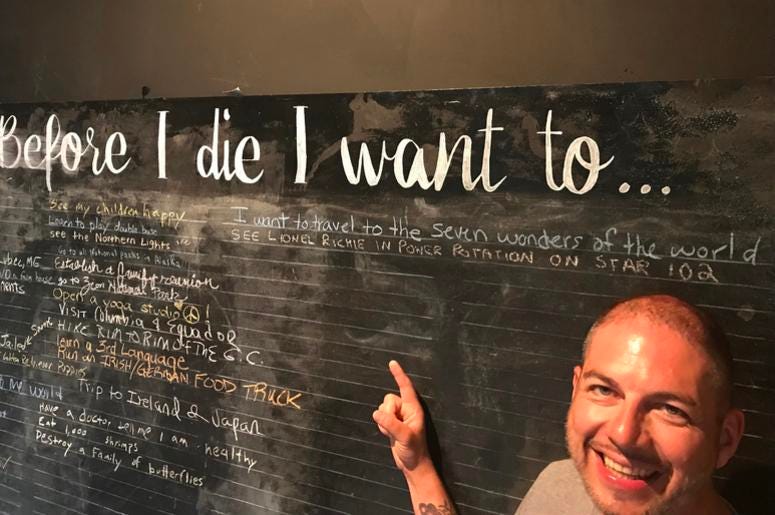 Before I die I want to...
See my children happy
Learn to play double bass
see the Northern Lights
Go to all National parks in Alaska
Establish a family reunion
go to Zion National Park
Open a yoga studio!
VISIT Columbia & Equador
HIKE RIM TO RIM OF THE G.C.
Learn a 3rd Language
Run an IRISH/GERMAN FOOD TRUCK
Trip to Ireland & Japan
Have a doctor tell me I am healthy
Eat 1,000 shrimps
Destroy a family of butterflies
I want to travel to the seven wonders of the world
SEE LIONEL RICHIE IN POWER ROTATION ON STAR 102